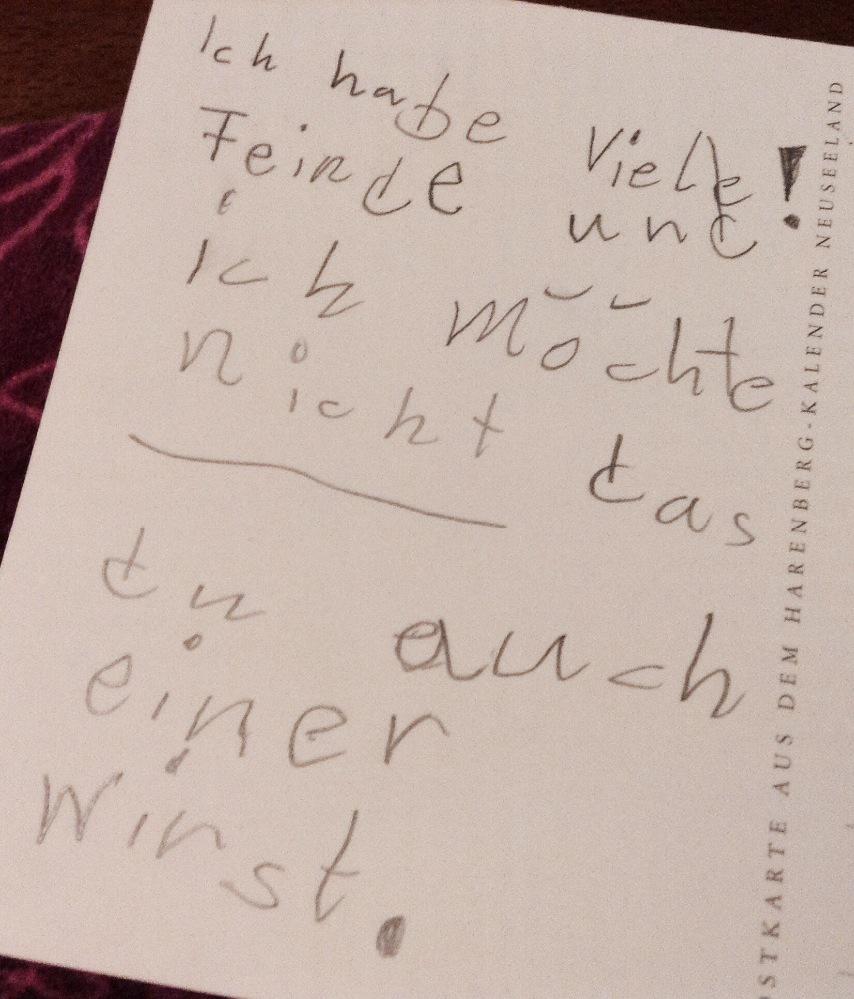 Ich habe Viele!
Feinde und
ich möchte
nicht das
du auch
einer
Wirst.
STKARTE AUS DEM HARENBERG-KALENDER NEUSEELAND